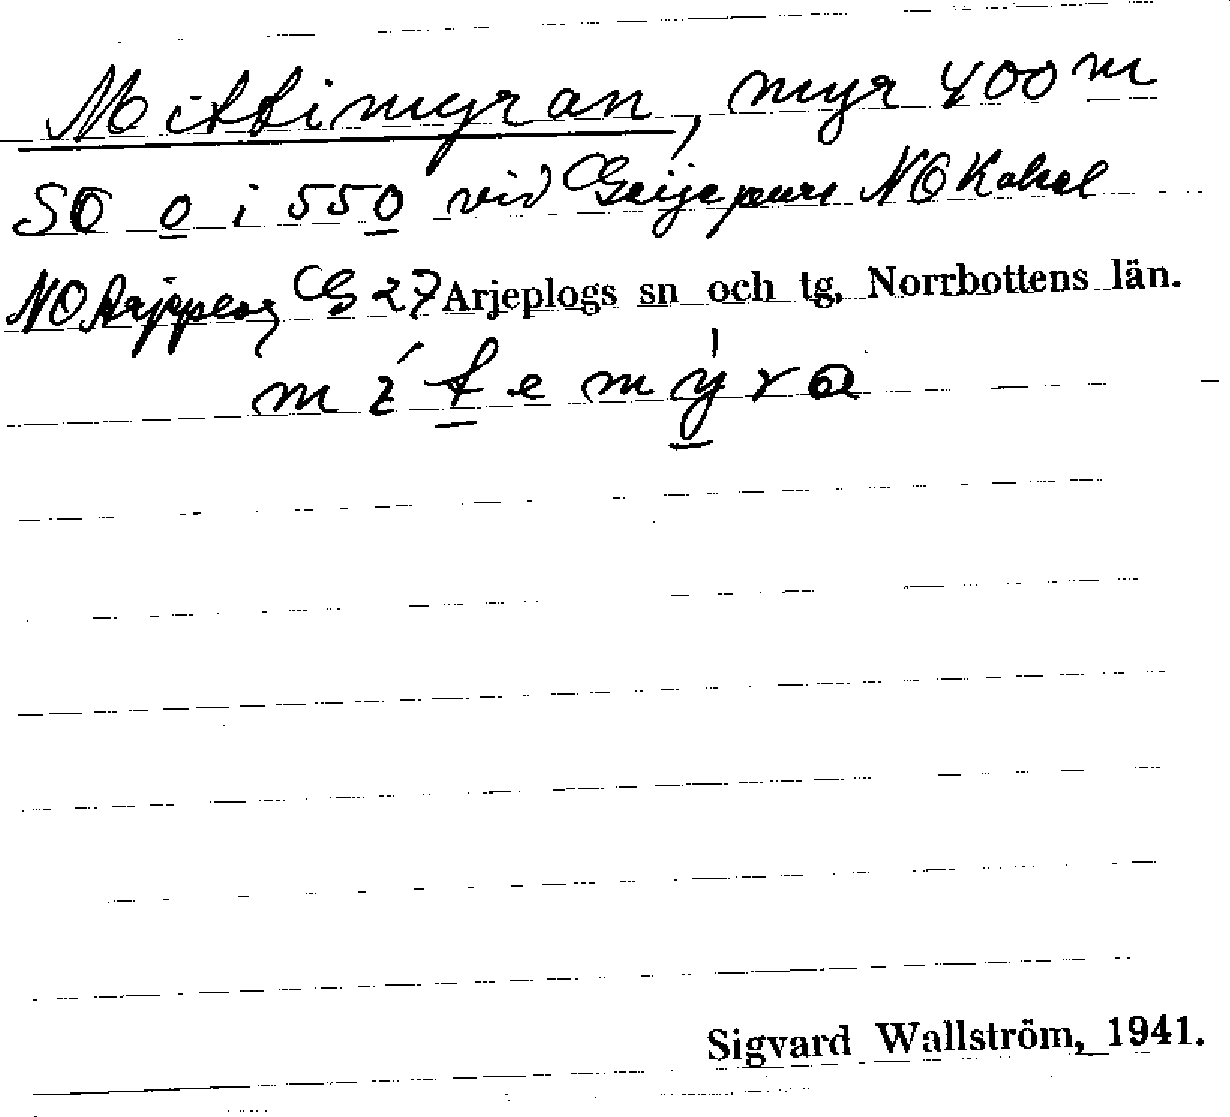 Mittimyran, myr 400 m
SO o i 550 vid Geijapure NO Kakel
NO Arjeplog G 27 Arjeplogs sn och tg, Norrbottens län.
mítemýra
Sigvard Wallström, 1941.